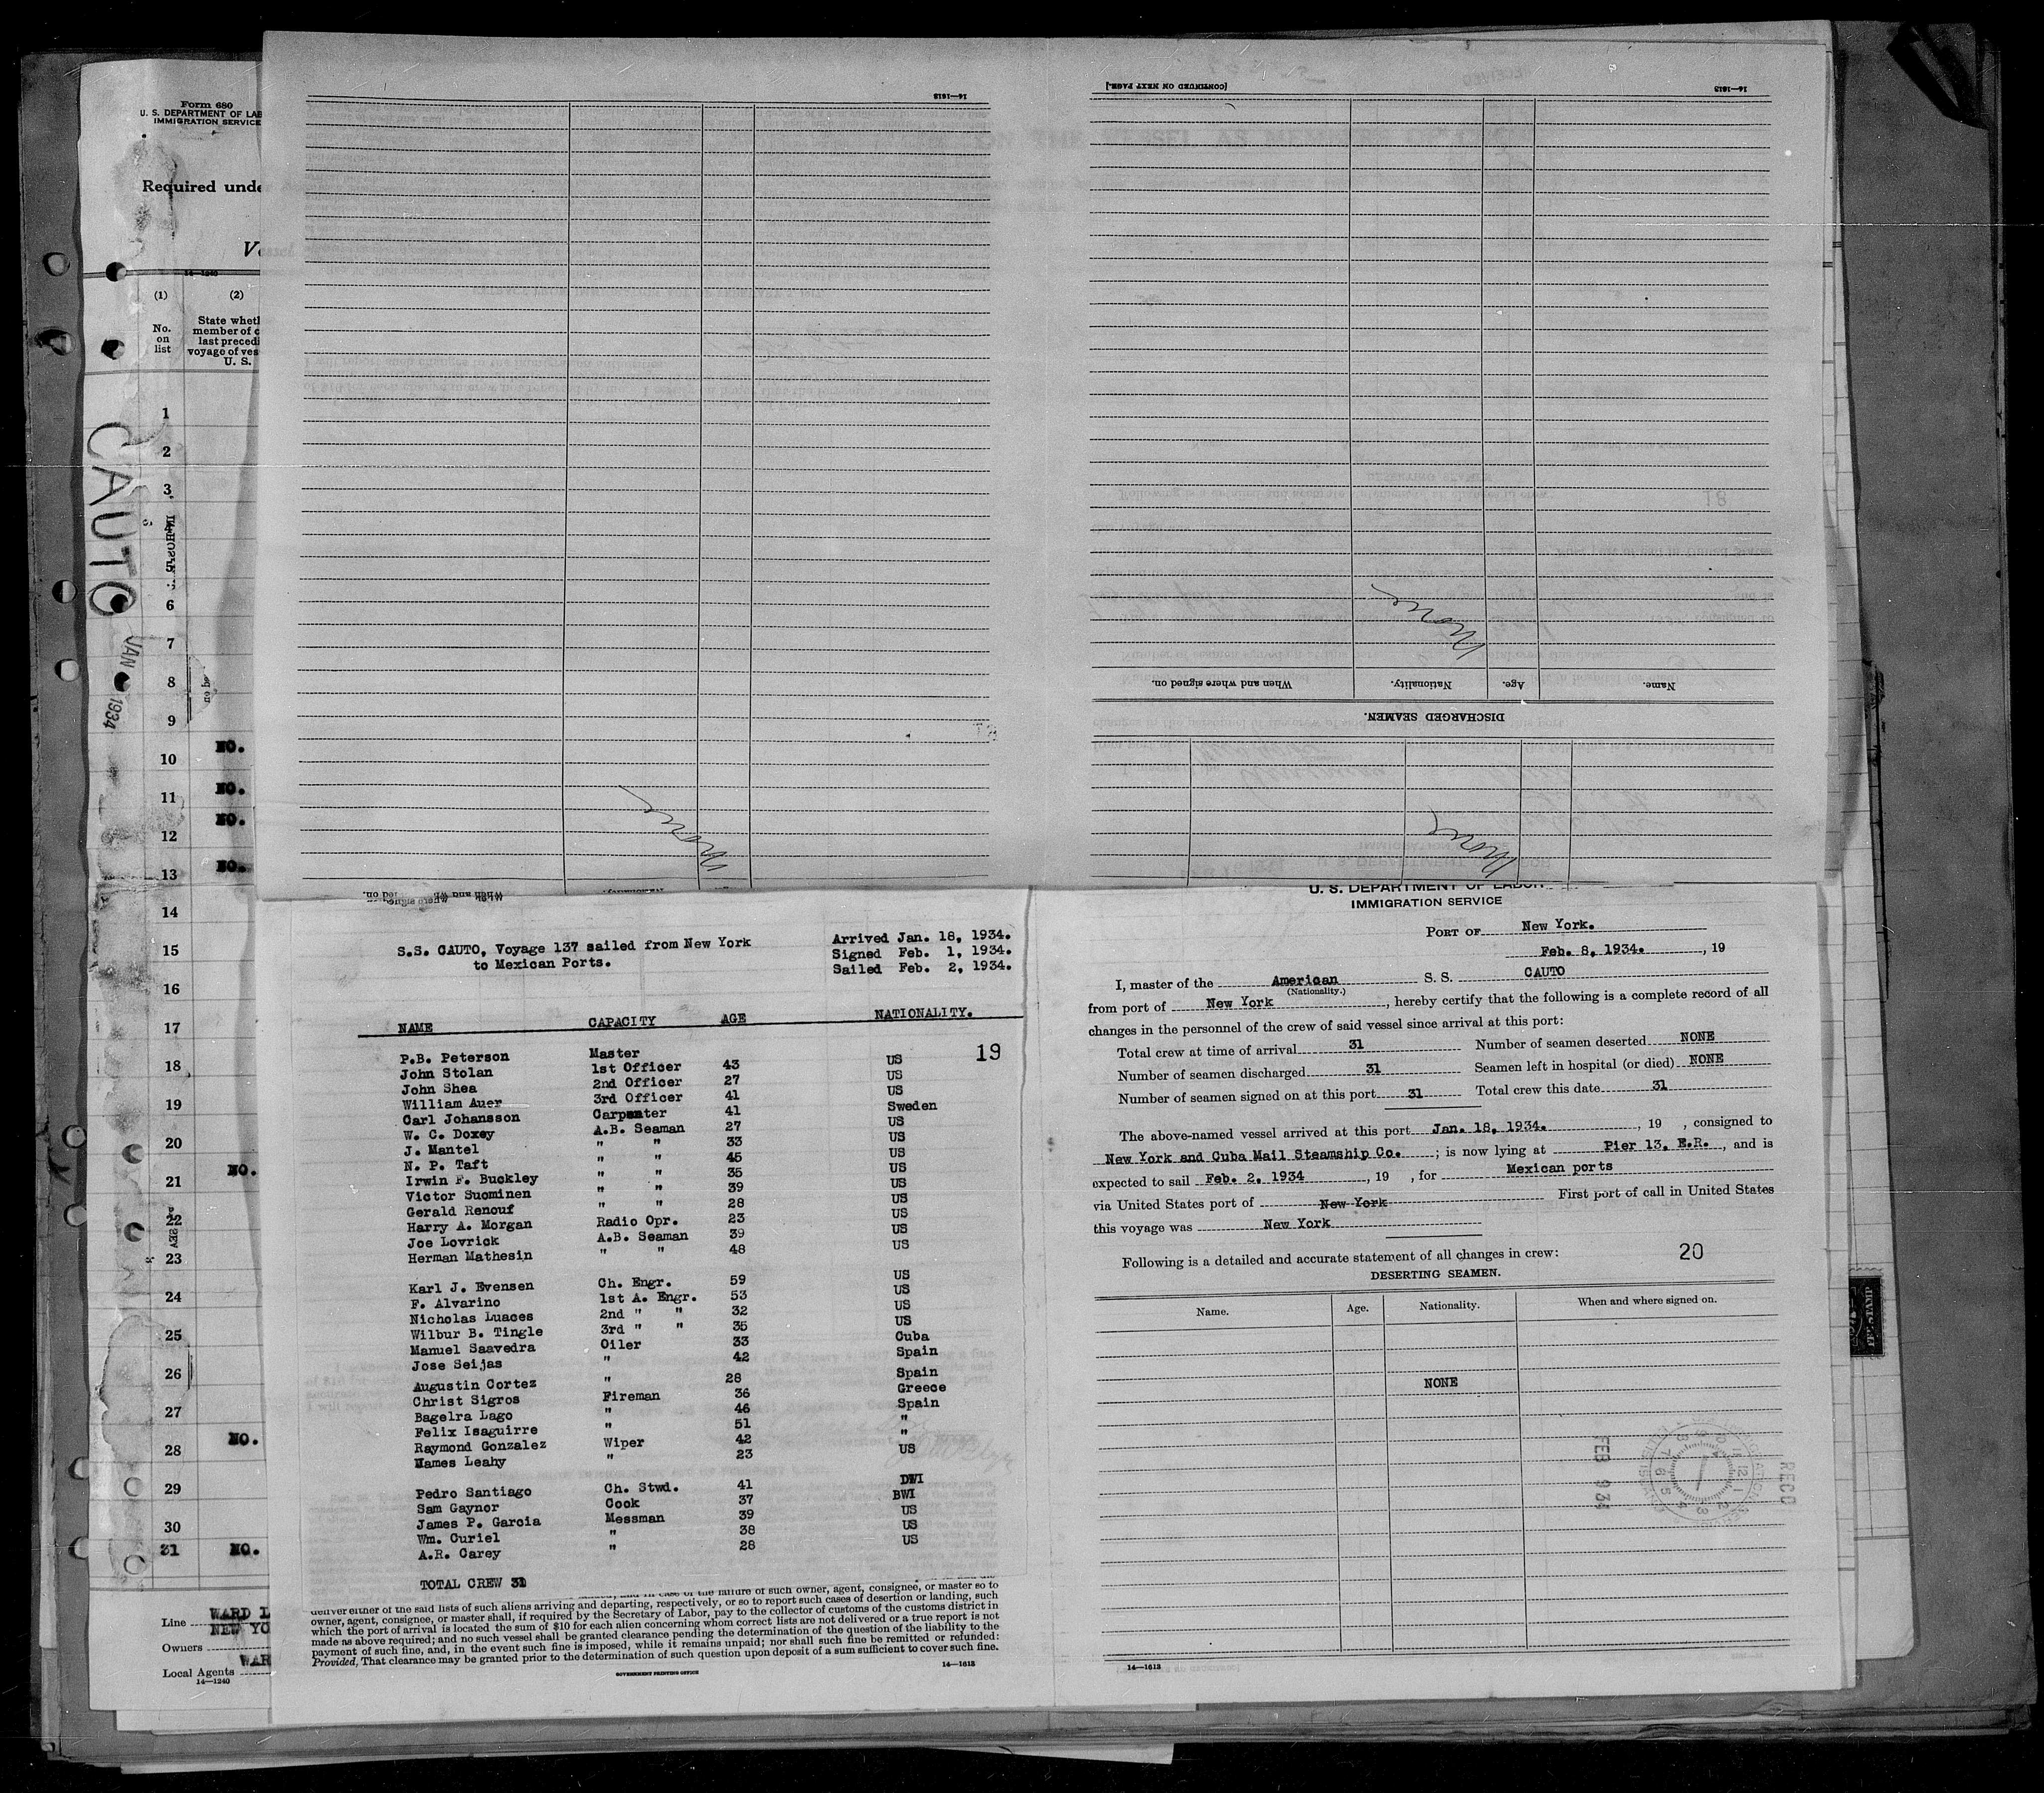 Form 680
U. S. DEPARTMENT OF LAB
IMMIGRATION SERVICE
Required unde
(1) (2)
No. on list
State wheth
member of c
last precedi
voyage of ves
U. S.
CAUTO
JAN 1934
1
2
3
5
6
7
8
9
10 NO.
11 NO.
12 NO.
13 NO.
14
15
16
17
18
19
20
21 NO.
22
23
24
25
26
27
28 NO.
29
30
31 NO.
Line WARD L
NEW YO
Owners
Local Agents WAR
14—1240
14—1613
None
[CONTINUED ON NEXT PAGE.]
14—1613
None
Name. Age. Nationality. When and where signed on.
DISCHARGED SEAMEN.
None
S.S. CAUTO, Voyage 137 sailed from New York
to Mexican Ports.
Arrived Jan. 18, 1934.
Signed Feb. 1, 1934.
Sailed Feb. 2, 1934.
NAME CAPACITY AGE NATIONALITY.
19
P.B. Peterson Master
John Stolan 1st Officer 43 US
John Shea 2nd Officer 27 US
William Auer 3rd Officer 41 US
Carl Johansson Carpenter 41 Sweden
W. C. Doxey A.B. Seaman 27 US
J. Mantel " " 33 US
N. P. Taft " " 45 US
Irwin F. Buckley " " 35 US
Victor Suominen " " 39 US
Gerald Renouf " " 28 US
Harry A. Morgan Radio Opr. 23 US
Joe Lovrick A.B. Seaman 39 US
Herman Mathesin " " 48 US
Karl J. Evensen Ch. Engr. 59 US
F. Alvarino 1st A. Engr. 53 US
Nicholas Luaces 2nd " " 32 US
Wilbur B. Tingle 3rd " " 35 US
Manuel Saavedra Oiler 33 Cuba
Jose Seijas " 42 Spain
Augustin Cortez " 28 Spain
Christ Sigros Fireman 36 Greece
Bagelra Lago " 46 Spain
Felix Isaguirre " 51 "
Raymond Gonzalez Wiper 42 "
James Leahy " 23 US
Pedro Santiago Ch. Stwd. 41 DWI
Sam Gaynor Cook 37 BWI
James P. Garcia Messman 39 US
Wm. Curiel " 38 US
A.R. Carey " 28 US
TOTAL CREW 31
and in case of the failure of such owner, agent, consignee, or master so to
deliver either of the said lists of such aliens arriving and departing, respectively, or so to report such cases of desertion or landing, such
owner, agent, consignee, or master shall, if required by the Secretary of Labor, pay to the collector of customs of the customs district in
which the port of arrival is located the sum of $10 for each alien concerning whom correct lists are not delivered or a true report is not
made as above required; and no such vessel shall be granted clearance pending the determination of the question of the liability to the
payment of such fine, and, in the event such fine is imposed, while it remains unpaid; nor shall such fine be remitted or refunded:
Provided, That clearance may be granted prior to the determination of such question upon deposit of a sum sufficient to cover such fine.
GOVERNMENT PRINTING OFFICE
14—1613
U. S. DEPARTMENT OF LABOR
IMMIGRATION SERVICE
PORT OF New York.
Feb. 8, 1934. , 19
I, master of the American S. S. CAUTO
(Nationality.)
from port of New York , hereby certify that the following is a complete record of all
changes in the personnel of the crew of said vessel since arrival at this port:
Total crew at time of arrival 31 Number of seamen deserted NONE
Number of seamen discharged 31 Seamen left in hospital (or died) NONE
Number of seamen signed on at this port 31 Total crew this date 31
The above-named vessel arrived at this port Jan. 18, 1934. , 19 , consigned to
New York and Cuba Mail Steamship Co. ; is now lying at Pier 13, E.R. , and is
expected to sail Feb. 2, 1934 , 19 , for Mexican ports
via United States port of New York First port of call in United States
this voyage was New York
Following is a detailed and accurate statement of all changes in crew: 20
DESERTING SEAMEN.
Name. Age. Nationality. When and where signed on.
NONE
FEB 9 34
RECD
14—1613